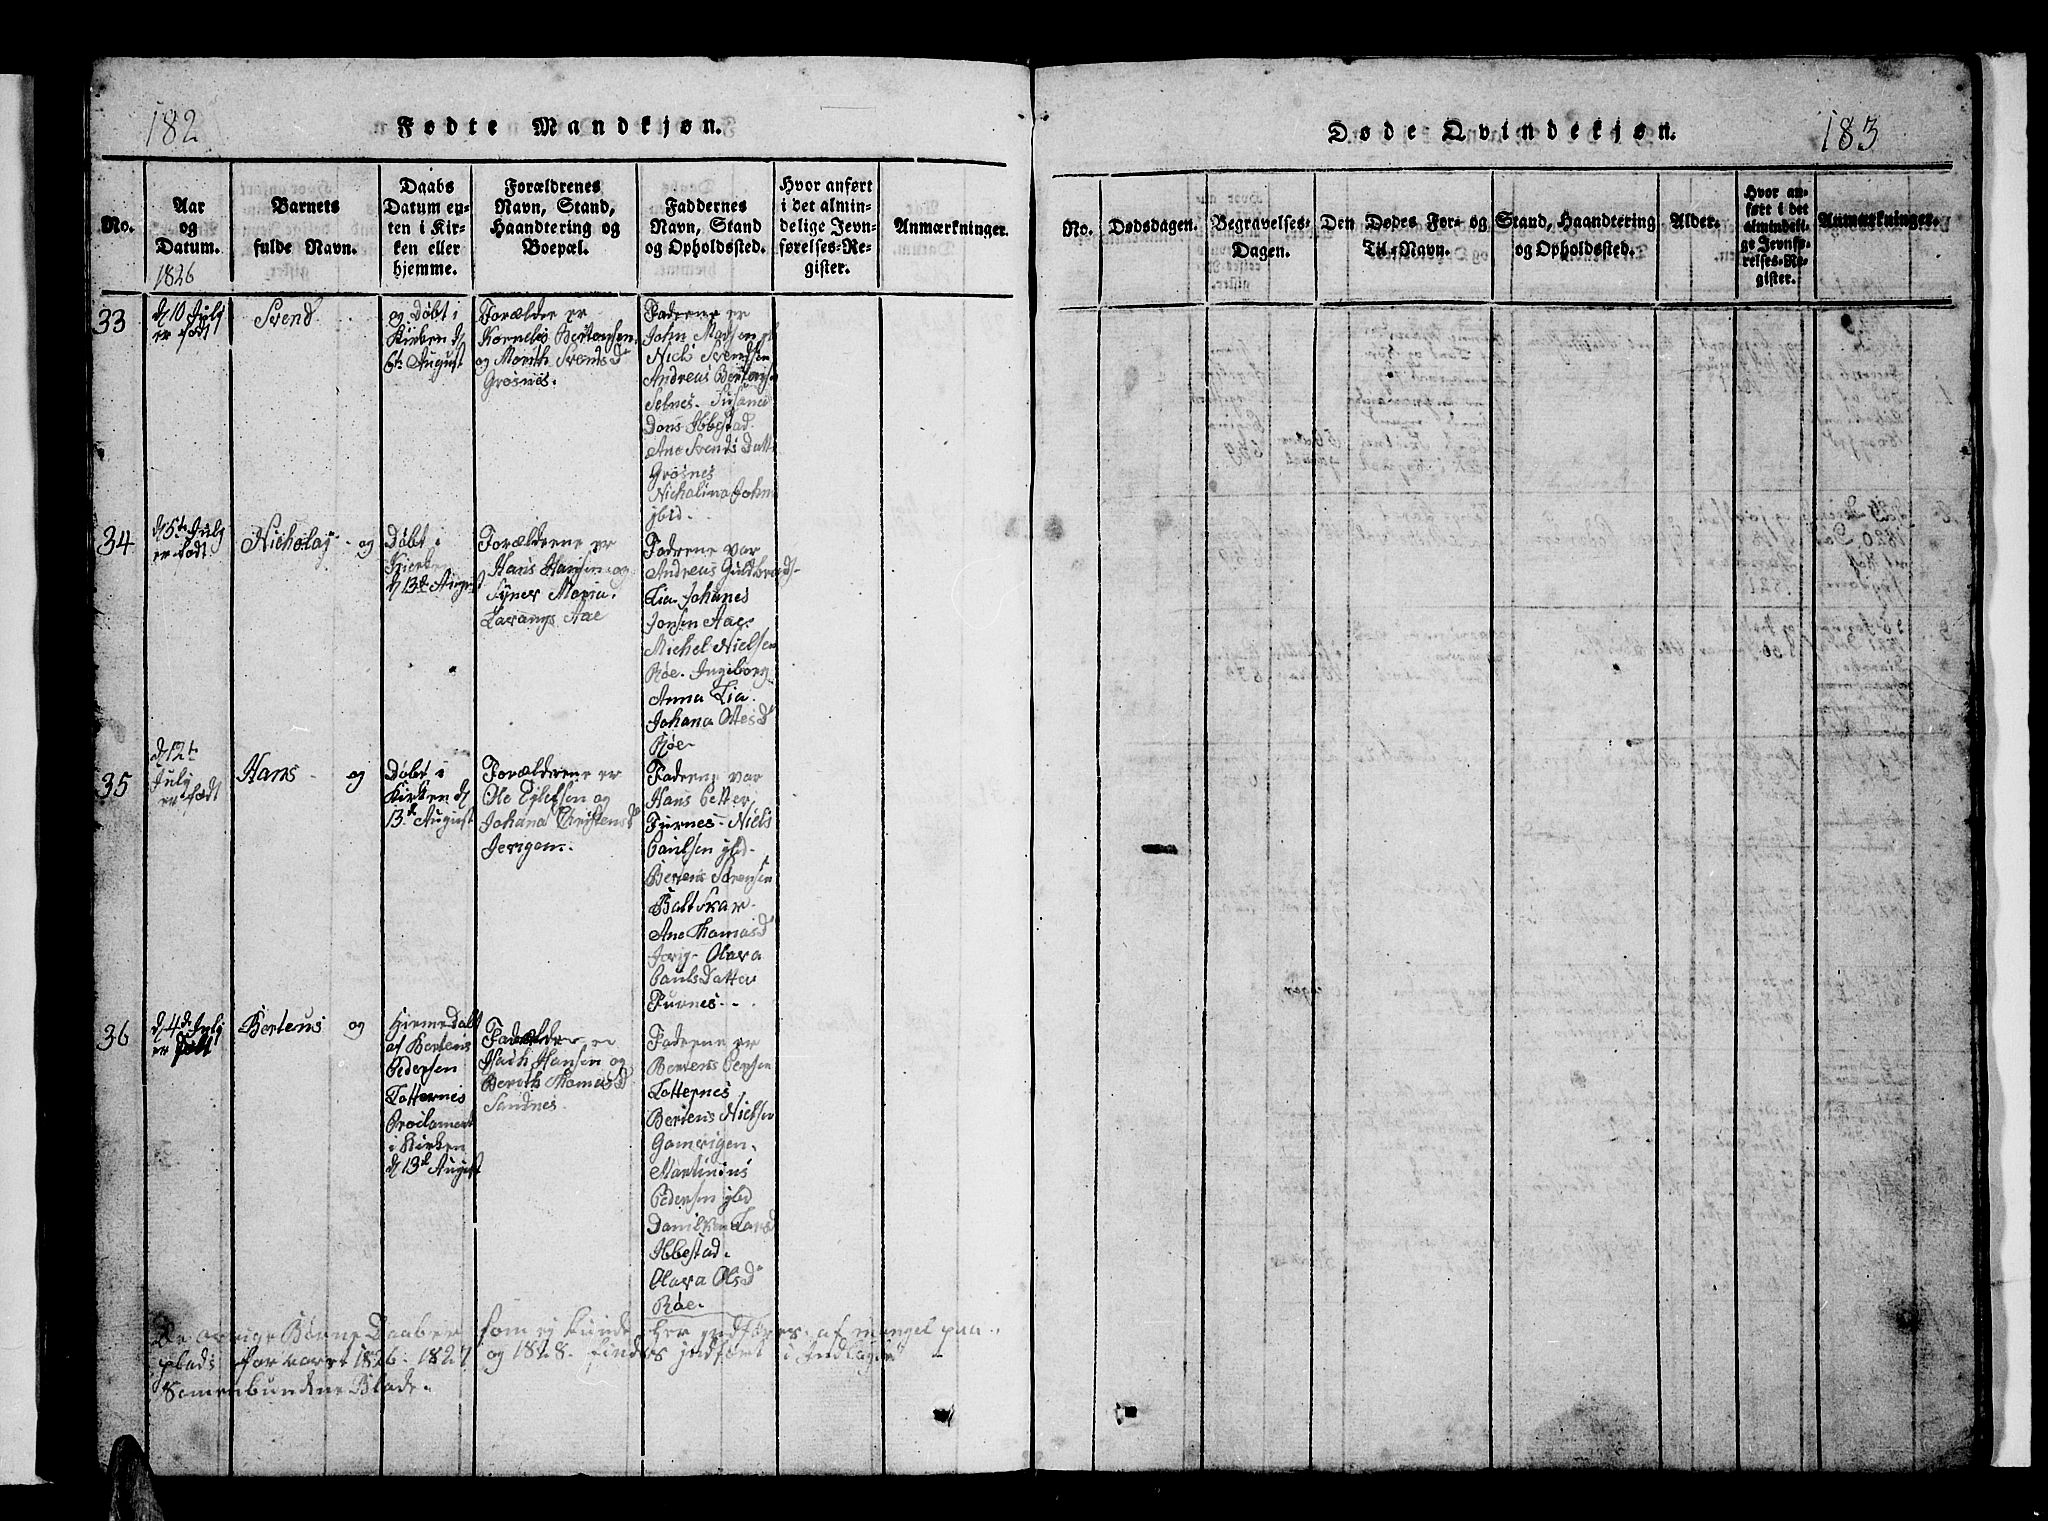 182
Fødte Mandkjøn.
No.
Aar
og
Datum.
1826
Barnets
fulde Navn.
Daabs
Datum en-
ten i Kir-
ken eller
hjemme.
Forældrenes
Navn, Stand,
Haandtering og
Boepæl.
Faddernes
Navn, Stand
og Opholdssted.
Hvor anført
i det almin-
delige Jevn-
førelses-Re-
gister.
Anmærkninger.
33
d 10 July
er født
Svend
og Døbt i
Kirken d
6te August
Forælder er
Kornelis Bertensen
og Marith Svendsd
Grøsnes.
Faderne er
John Madsen
Niels Svendsen
Andreas Bertens
Selnes. Susana
Dons Ibbestad.
Ane Svends Datt
Grøsnes
Nicholina John
ybid.
34
d 5te July
er født
Nicholaj - og
Døbt i
Kierken
d 13de August
Forældrene er
Hans Hansen og
Syner Maria.
Lavangs Aae
Fadrene var
Andreas Guldbrands-
Lia. Johanes
Jonsen Aae.
Michel Nielsen
Røe. Ingeborg
Anna Lia.
Johana Ottesd
Røe
35
d 12te
July
er født
Hans - og
Døbt i
Kirken d
13de August
Forældrene er
Ole Ejlefsen og
Johana Christensd
Jerigen.
Fadrene var
Hans Petter
Furnes - Niels
Paulsen ybd-
Bertens Sørensen
Baltskar-
Ane Thomasd
Jorig- Olava
Pauls Datter
Furnes - -
36
d 4de July
er født
Berteus og
Hiemedøbt
af Bertens
Pedersen
Lotternes
Proclament
i Kirken
d 13de August
Forælder er
Isach Hansen og
Berith Thomasd
Sandnes
Faderne er
Bertens Persen
Lotternes
Bertens Nielsen
Gamerigen.
Martinus
Pedersen ybd
Danilken Larsd
Ibbestad.
Olava Olsd
Røe.
De øvrige Børne Daaber som ej kunde her indføres af mangel paa
plads for aaret 1826. 1827 og 1828. findes indført i Indlagde
Samenbundne Blade.
183
Døde Qvindekjøn.
No.
Dødsdagen.
Begravelses-
Dagen.
Den Dødes For- og
Til-Navn.
Stand, Haandtering
og Opholdssted.
Alder.
Hvor an-
ført i det
almindeli-
ge Jevnfø-
relses-Re-
gister.
Anmærkninger.